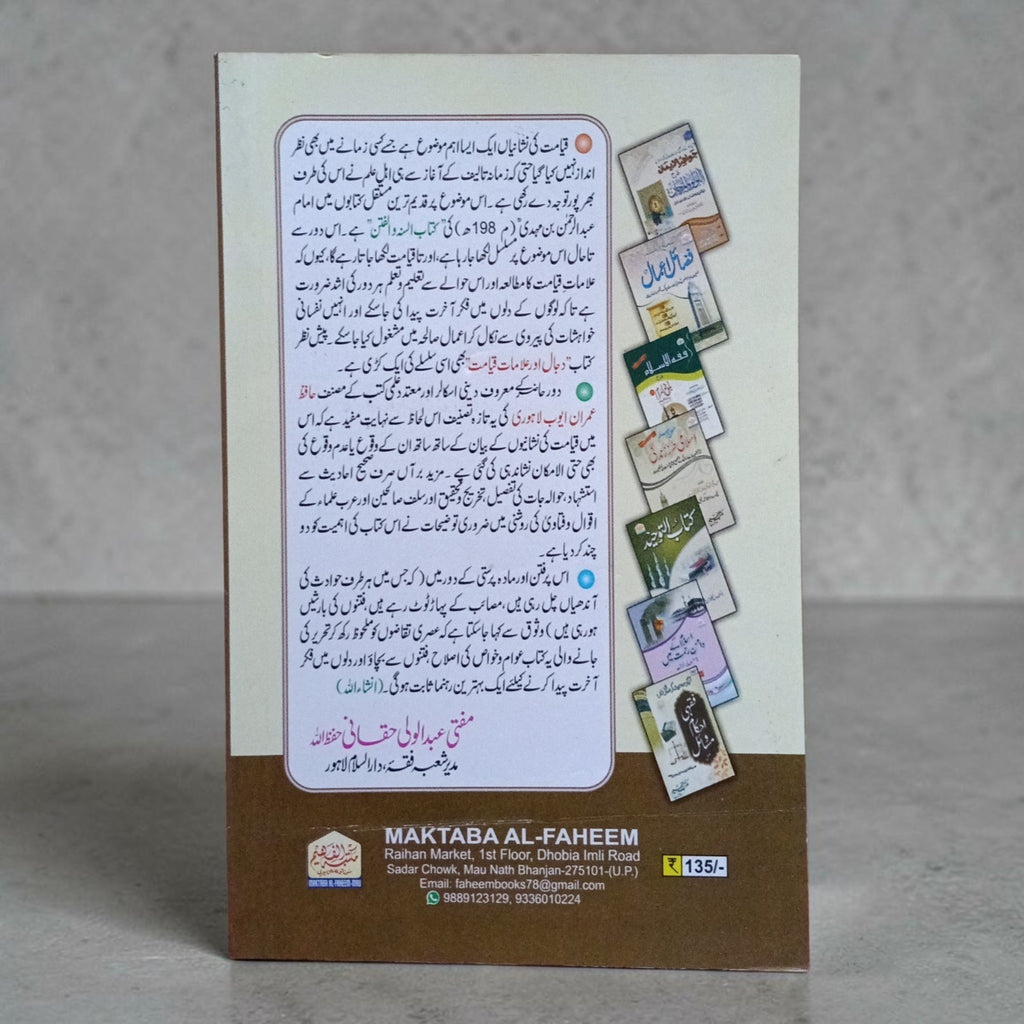 قیامت کی نشانیاں ایک ایسا اہم موضوع ہے جسے کسی زمانے میں بھی نظر
انداز نہیں کیا گیا حتی کہ زمانہ تالیف کے آغاز سے ہی اہل علم نے اس کی طرف
بھرپور توجہ دے رکھی ہے۔ اس موضوع پر قدیم ترین مستقل کتابوں میں امام
عبدالرحمٰن بن مہدیؒ (م 198ھ) کی "کتاب السنہ والفتن" ہے۔ اس دور سے
تا حال اس موضوع پر مسلسل لکھا جا رہا ہے، اور تا قیامت لکھا جاتا رہے گا، کیوں کہ
علاماتِ قیامت کا مطالعہ اور اس حوالے سے تعلیم و تعلم ہر دور کی اشد ضرورت
ہے تاکہ لوگوں کے دلوں میں فکر آخرت پیدا کی جاسکے اور انہیں نفسانی
خواہشات کی پیروی سے نکال کر اعمال صالحہ میں مشغول کیا جاسکے۔ پیش نظر
کتاب "دجال اور علامات قیامت" بھی اسی سلسلے کی ایک کڑی ہے۔
دور حاضر کے معروف دینی اسکالر اور معتمد علمی کتب کے مصنف حافظ
عمران ایوب لاہوری کی یہ تازہ تصنیف اس لحاظ سے نہایت مفید ہے کہ اس
میں قیامت کی نشانیوں کے بیان کے ساتھ ساتھ ان کے وقوع یا عدم وقوع کی
بھی حتی الامکان نشاندہی کی گئی ہے۔ مزید برآں صرف صحیح احادیث سے
استشہاد، حوالہ جات کی تفصیل، تخریج و تحقیق اور سلف صالحین اور عرب علماء کے
اقوال و فتاویٰ کی روشنی میں ضروری توضیحات نے اس کتاب کی اہمیت کو دو
چند کر دیا ہے۔
اس پرفتن اور مادہ پرستی کے دور میں (کہ جس میں ہر طرف حوادث کی
آندھیاں چل رہی ہیں، مصائب کے پہاڑ ٹوٹ رہے ہیں، فتنوں کی بارشیں
ہو رہی ہیں) وثوق سے کہا جاسکتا ہے کہ عصری تقاضوں کو ملحوظ رکھ کر تحریر کی
جانے والی یہ کتاب عوام و خواص کی اصلاح، فتنوں سے بچاؤ اور دلوں میں فکر
آخرت پیدا کرنے کیلئے ایک بہترین رہنما ثابت ہوگی۔ (انشاءاللہ)
مفتی عبدالولی حقانی حفظہ اللہ
مدیر شعبہ فقہ، دارالسلام لاہور
فضائل اعمال
فقہ الاسلام
اسلامی طرز زندگی
کتاب التوحید
فقہی احکام و مسائل
مکتبہ الفہیم
MAKTABA AL-FAHEEM-MAU
MAKTABA AL-FAHEEM
Raihan Market, 1st Floor, Dhobia Imli Road
Sadar Chowk, Mau Nath Bhanjan-275101-(U.P.)
Email: faheembooks78@gmail.com
9889123129, 9336010224
₹ 135/-